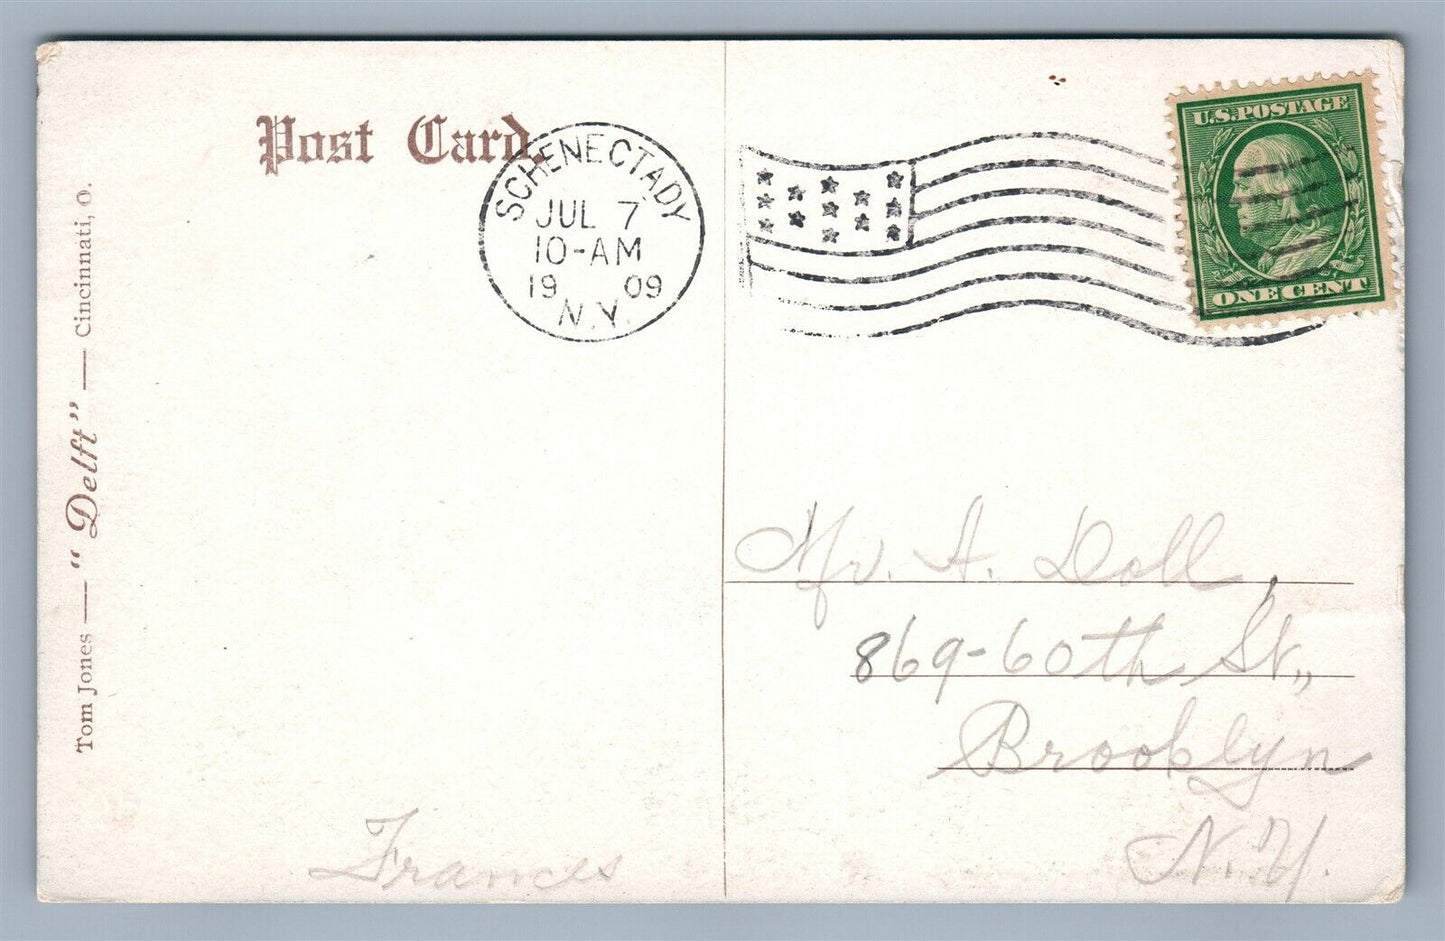 Post Card.
SCHENECTADY
JUL 7
10-AM
19 09
N.Y.
U.S. POSTAGE
ONE CENT
Tom Jones — "Delft" — Cincinnati, O.
Mr. A. Doll,
869-60th St.,
Brooklyn
N.Y.
Frances